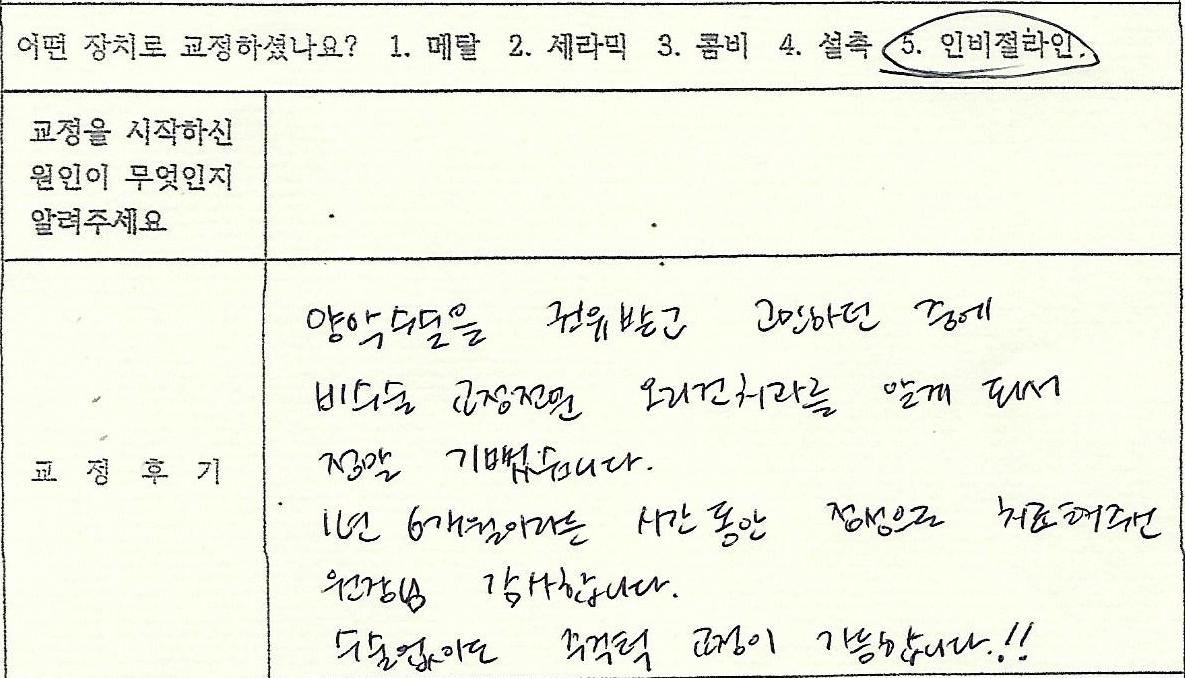 어떤 장치로 교정하셨나요? 1. 메탈 2. 세라믹 3. 콤비 4. 설측 5. 인비절라인.
교정을 시작하신
원인이 무엇인지
알려주세요
교 정 후 기
양악수술을 권유받고 고민하던 중에
비수술 교정전문 오리건치과를 알게 되서
정말 기뻤습니다.
1년 6개월이라는 시간동안 정성으로 치료해주신
원장님 감사합니다.
수술없이도 주걱턱 교정이 가능합니다.!!